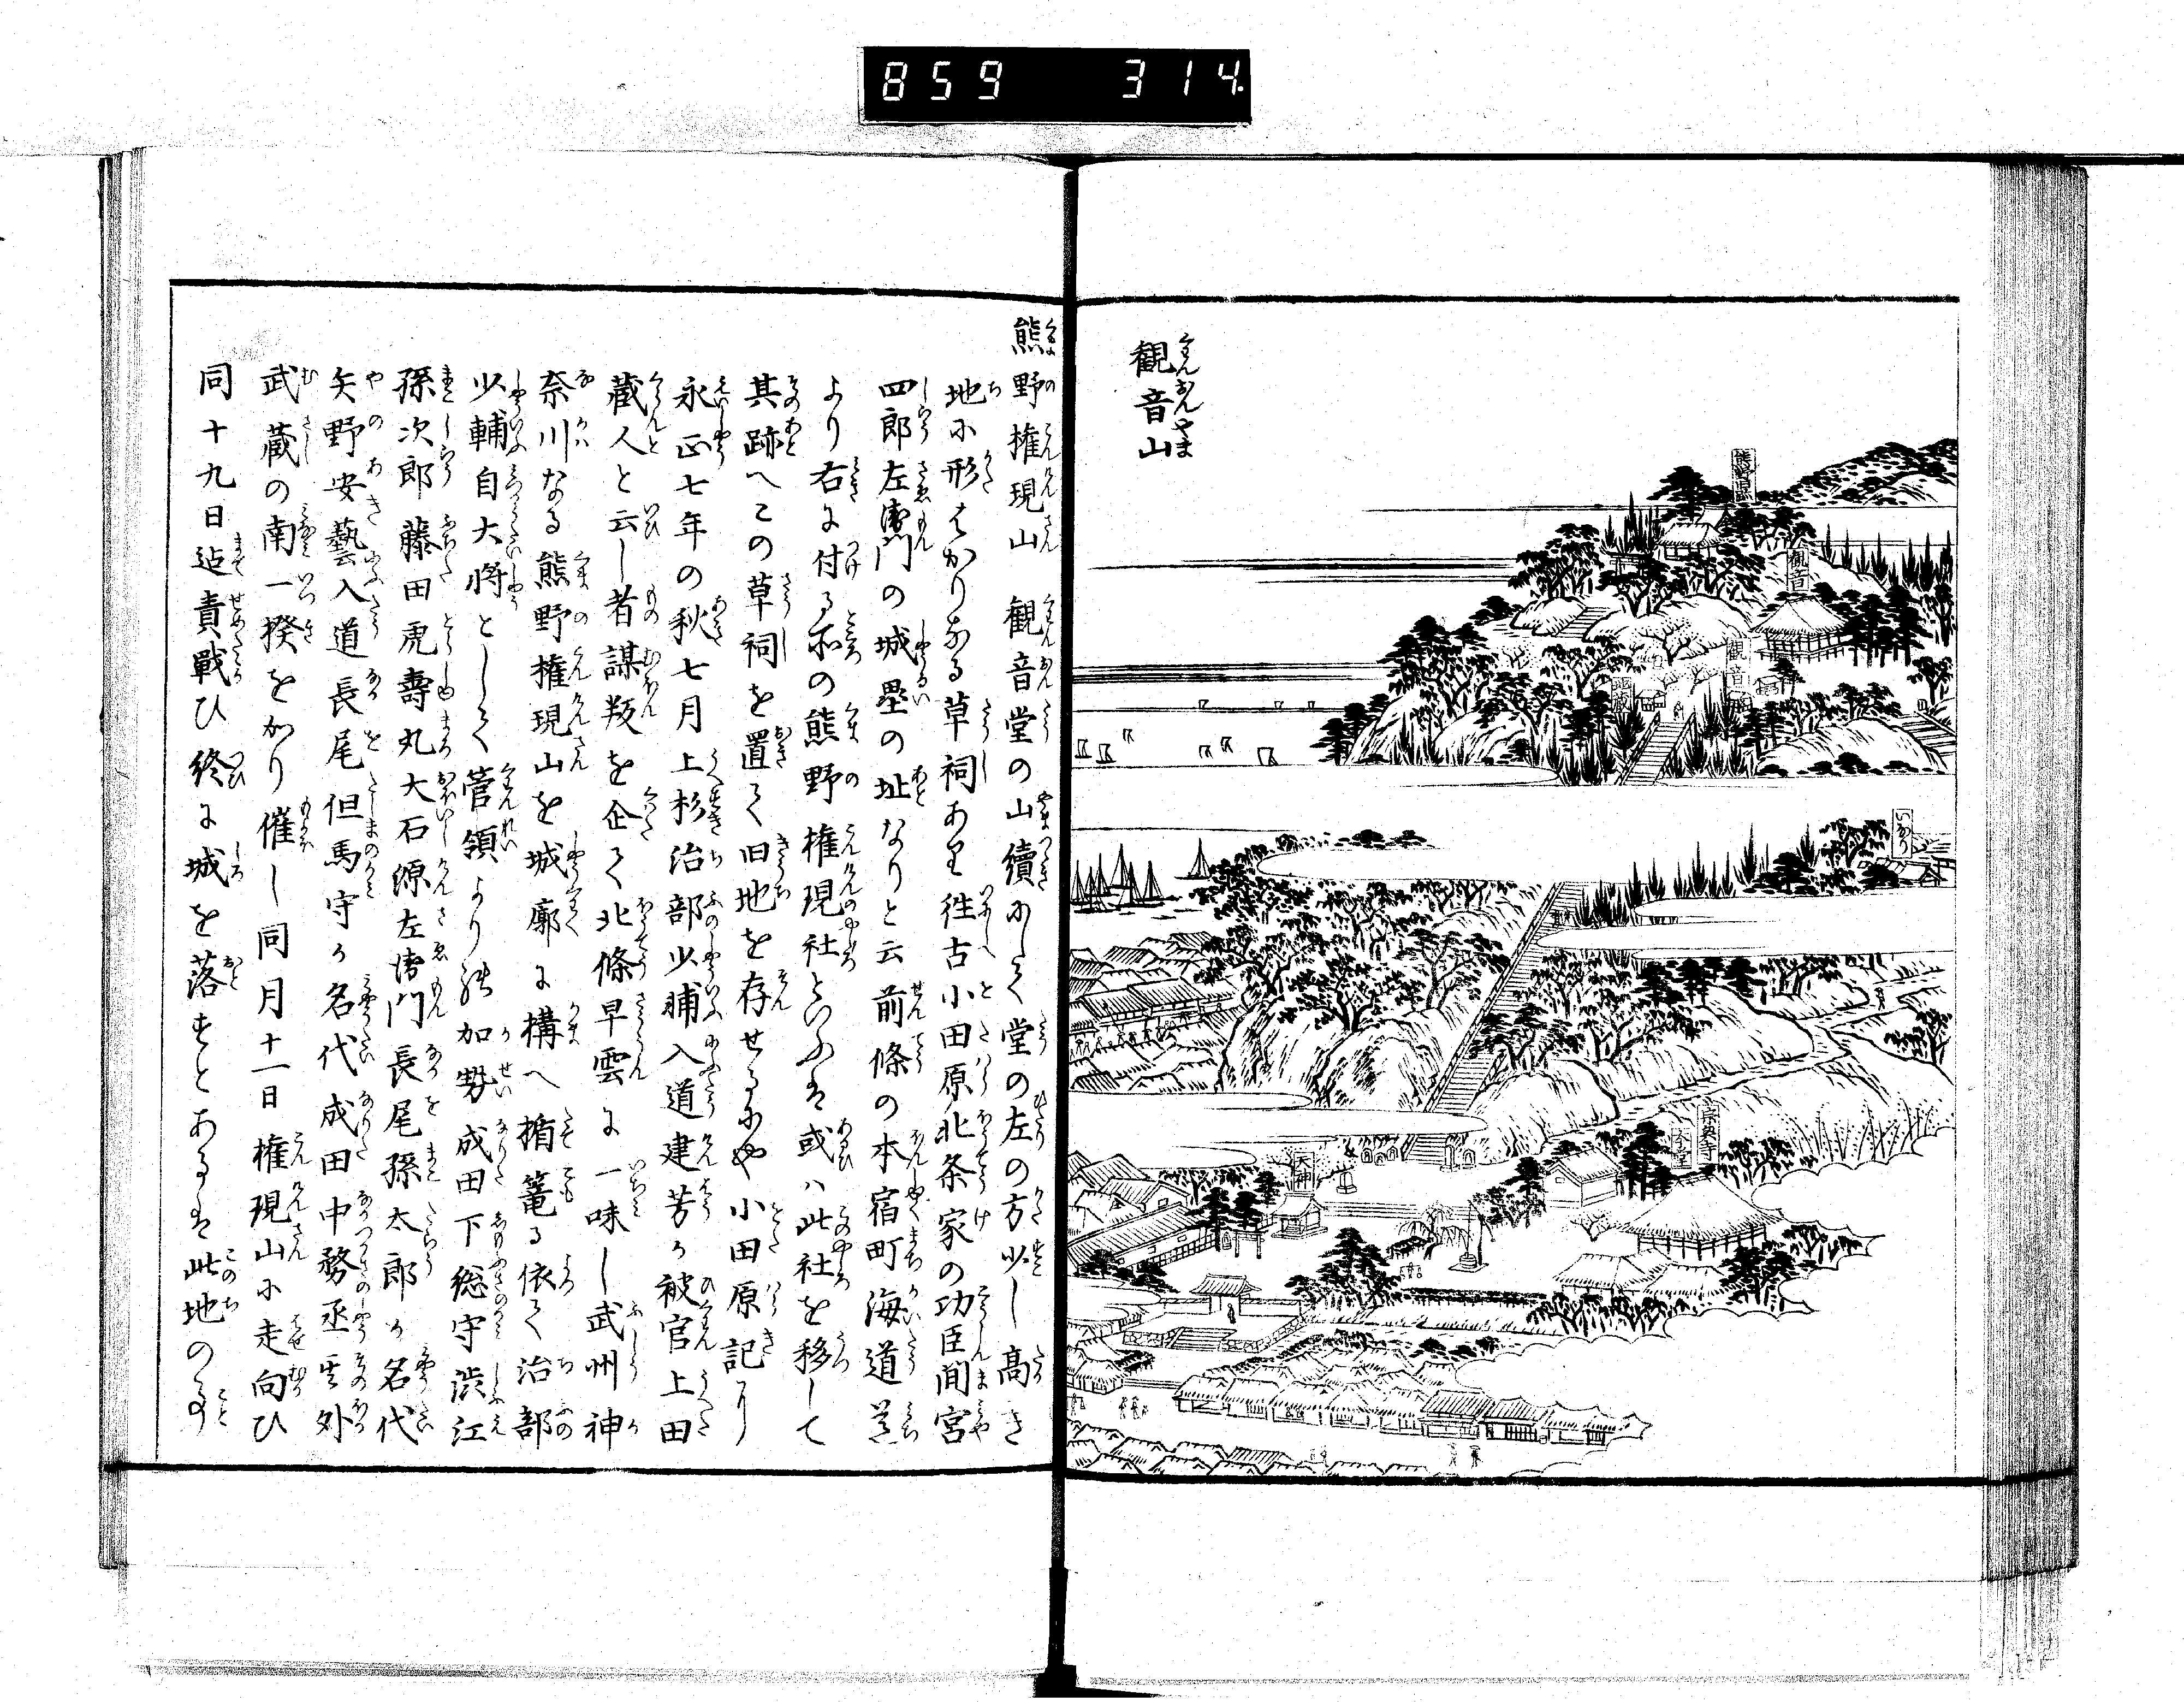 859 314
観音山
熊野権現
観音
熊野権現山 観音堂の山續にして堂の左の方少し高き
地に形はかりなる草祠あり往古小田原北条家の功臣間宮
四郎左衛門の城塁の址なりと云前條の本宿町海道
より右に付る所の熊野権現社といふは或ハ此社を移して
其跡へこの草祠を置て旧地を存せるにや小田原記に
永正七年の秋七月上杉治部少輔入道建芳か被官上田
蔵人と云し者謀叛を企て北條早雲に一味し武州神
奈川なる熊野権現山を城廓に構へ楯篭る依て治部
少輔自大将として菅領より加勢成田下総守渋江
孫次郎藤田虎壽丸大石源左衛門長尾孫太郎か名代
矢野安藝入道長尾但馬守か名代成田中務丞其外
武蔵の南一揆をかり催し同月十一日権現山に走向ひ
同十九日迠責戰ひ終に城を落すとあるは此地の事